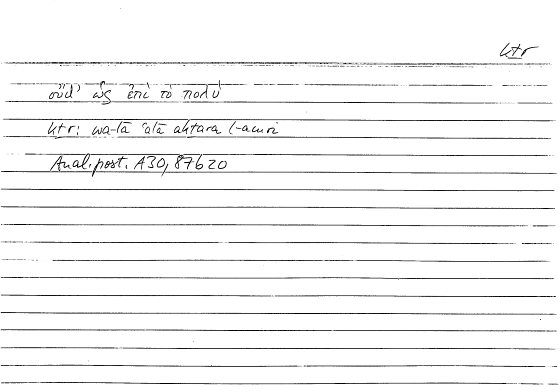 ktr
οὔθ' ὡς ἐπὶ τὸ πολύ
ktr: wa-lā ʿalā aktara l-amri
Anal. post. A30, 87b20